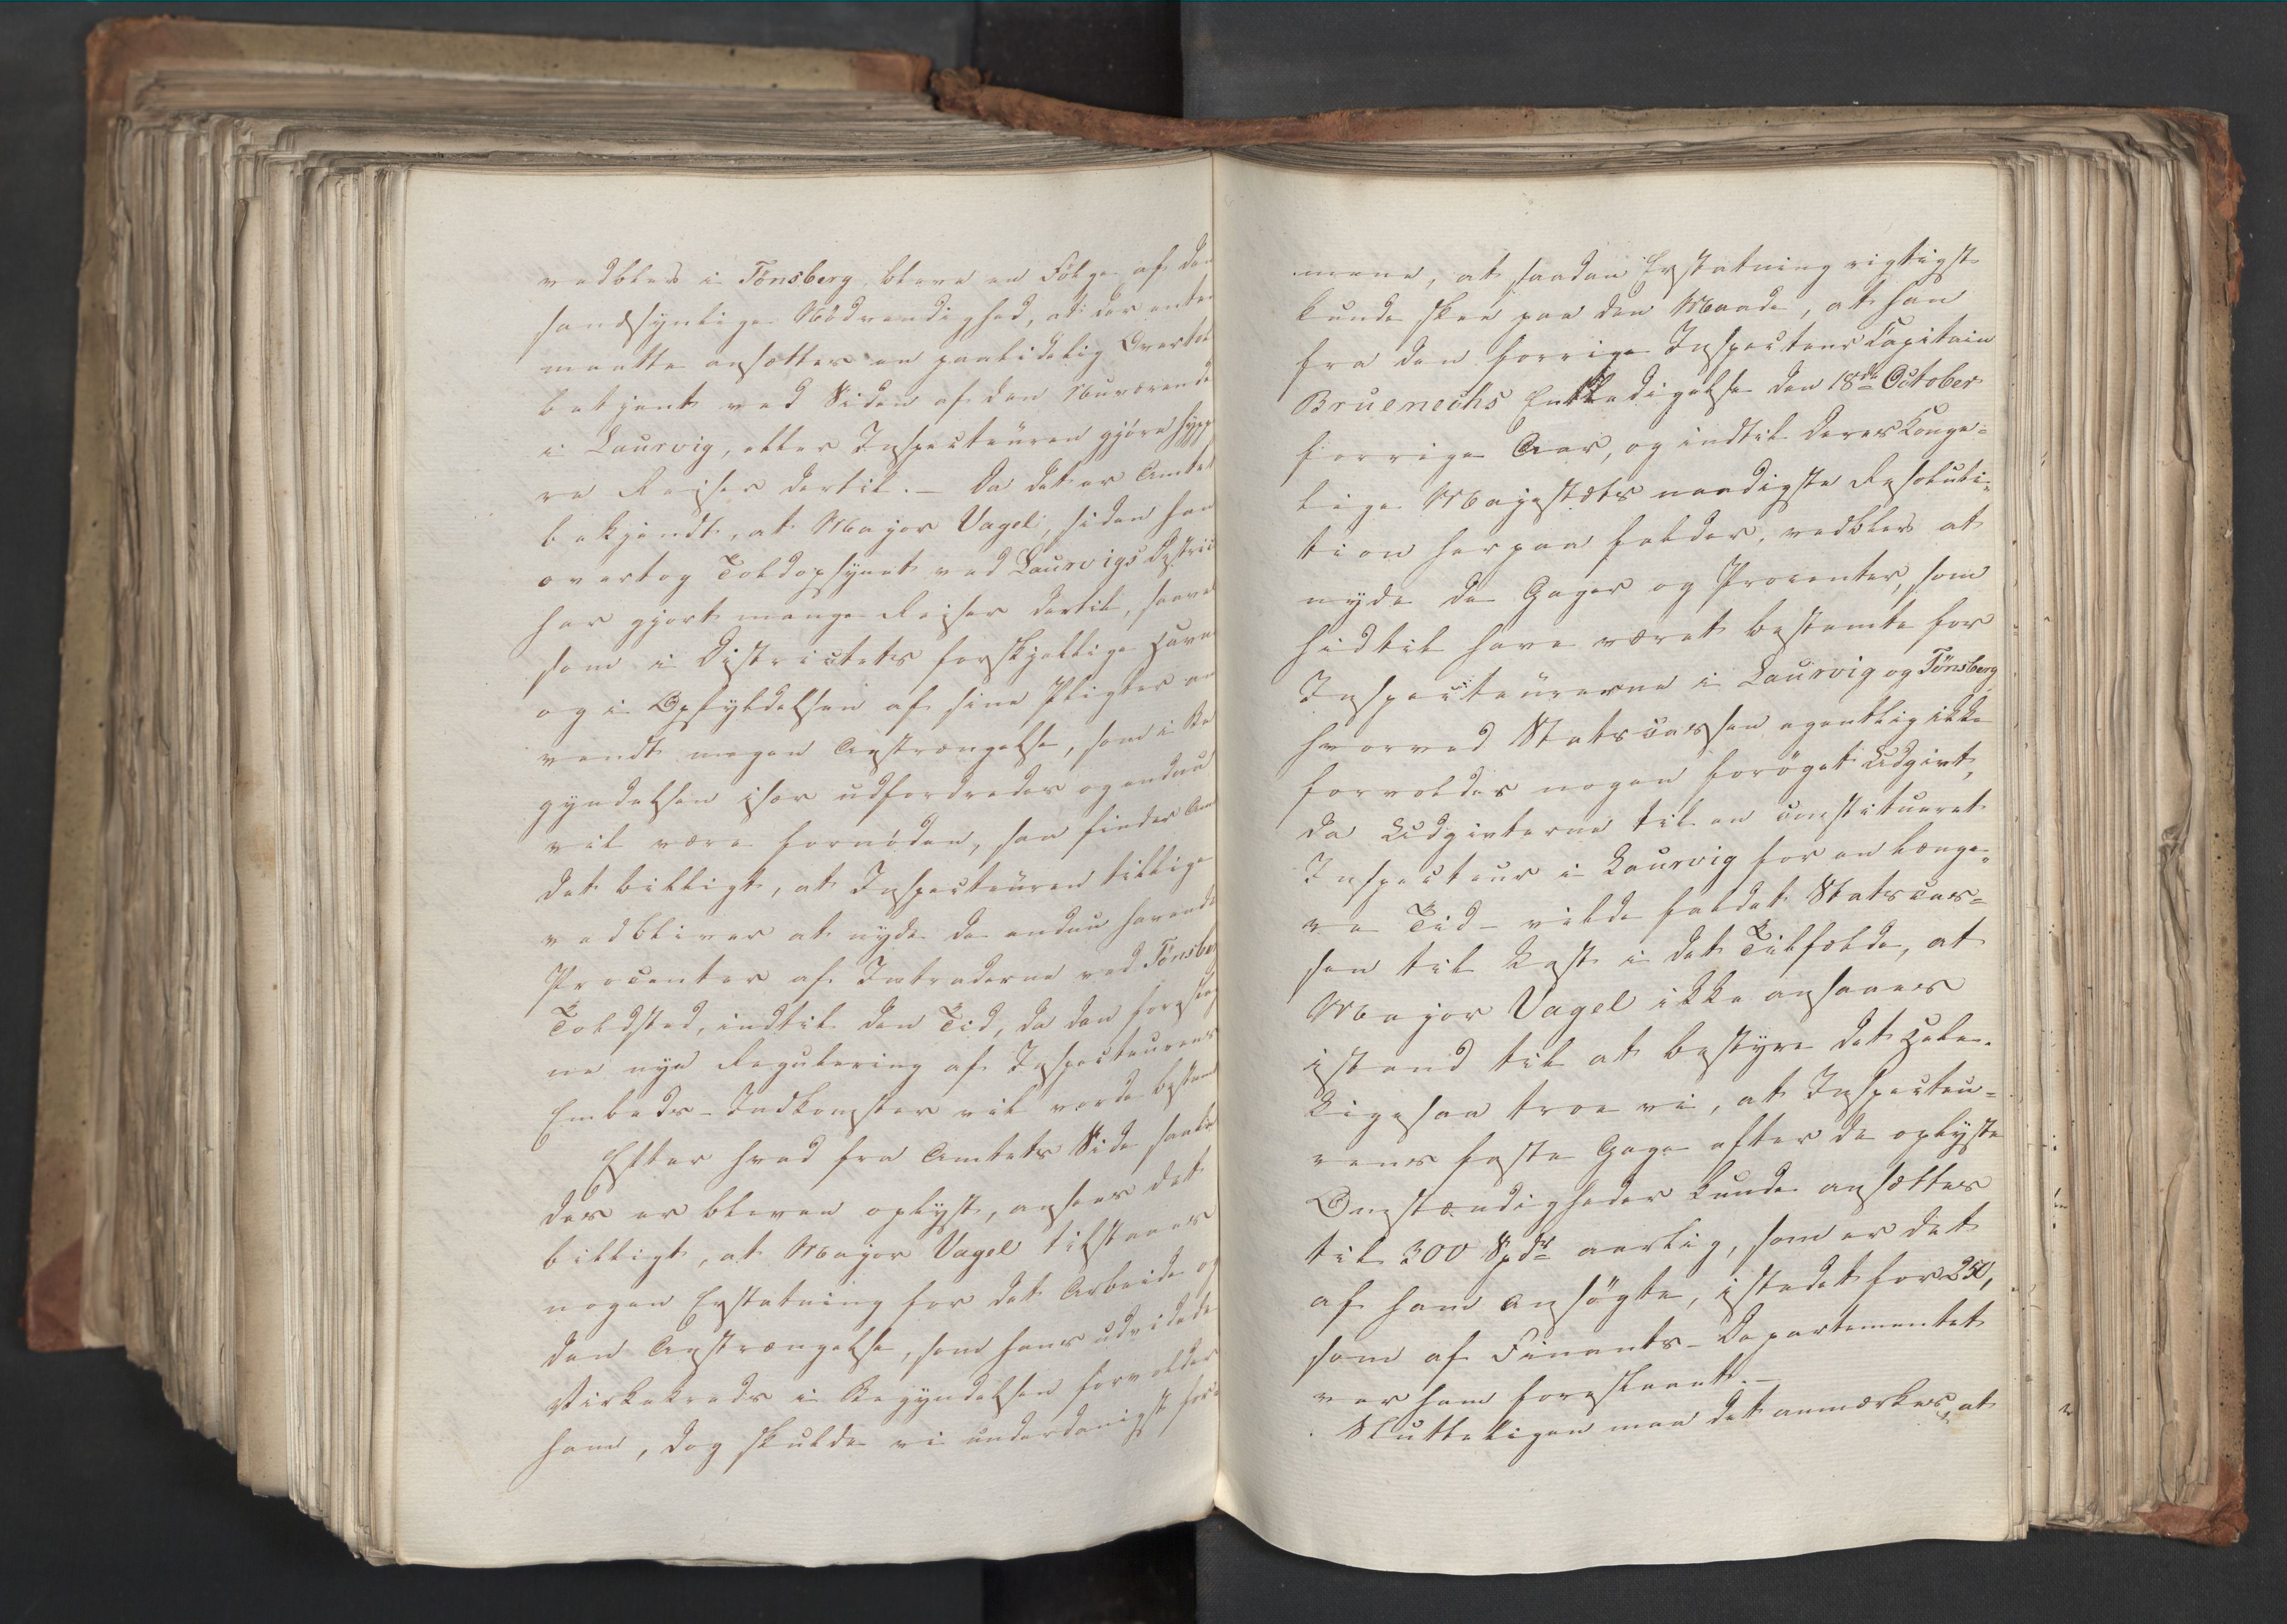 vedblev i Tönsberg, blive en Fölge af den
sandsynlige Nödvendighed, at der enten
maatte ansættes en paalidelig Overtol
betjent ved Siden af den Nuværende
i Laurvig, eller Inspecteüren gjöre hypp
re Reiser dertil. — Da det er Amtet
bekjendt, at Major Vagel, siden han
overtog Toldopsynet ved Laurvigs District
har gjort mange Reiser dertil, saavel
som i Districtets forskjellige Havne
og i Opfyldelsen af sine Pligter an
vendt megen Anstrængelse, som i Be
gyndelsen især udfordredes og endnu
vil være fornöden, saa finder Am
det billigt, at Inspecteüren tillige
vedbliver at nyde de endnu havende
Procenter af Intraderne ved Tönsberg
Toldsted, indtil den Tid, da den foreslag
ne nye Regulering af Inspecteurens
Embeds-Indkomster vil vorde bestemt
Efter hvad fra Amtets Side saale
des er bleven oplyst, ansees det
billigt, at Major Vagel tilstaaes
nogen Erstatning for det Arbeide og
den Anstrængelse, som hans udvidede
Virkekreds i Begyndelsen forvolder
ham, dog skulde vi underdanigst for=
mene, at saadan Erstatning rigtigst
kunde skee paa den Maade, at han
fra den forrige Inspecteur Capitain
Bruenechs Entledigelse den 18de October
forrige Aar, og indtil Deres Konge=
lige Majestæts naadigste Resoluti=
tion herpaa falder, vedblev at
nyde de Gager og Procenter, som
hidtil have været bestemte for
Inspecteürerne i Laurvig og Tönsberg
hvorved Statscassen egentlig ikke
forvoldes nogen foröget Udgivt,
da Udgivterne til en constitueret
Inspecteur i Laurvig for en længe=
re Tid – vilde faldet Statscas=
sen til Last i det Tilfælde, at
Major Vagel ikke ansaaes
istand til at bestyre det Hele.
Ligesaa troe vi, at Inspecteu=
rens faste Gage efter de oplyste
Omstændigheder kunde ansættes
til 300 Spdr aarlig, som er det
af ham Ansögte, istedet for 250,
som af Finants-Departementet
var ham foreslaaet. —
Slutteligen maa det anmærkes, at